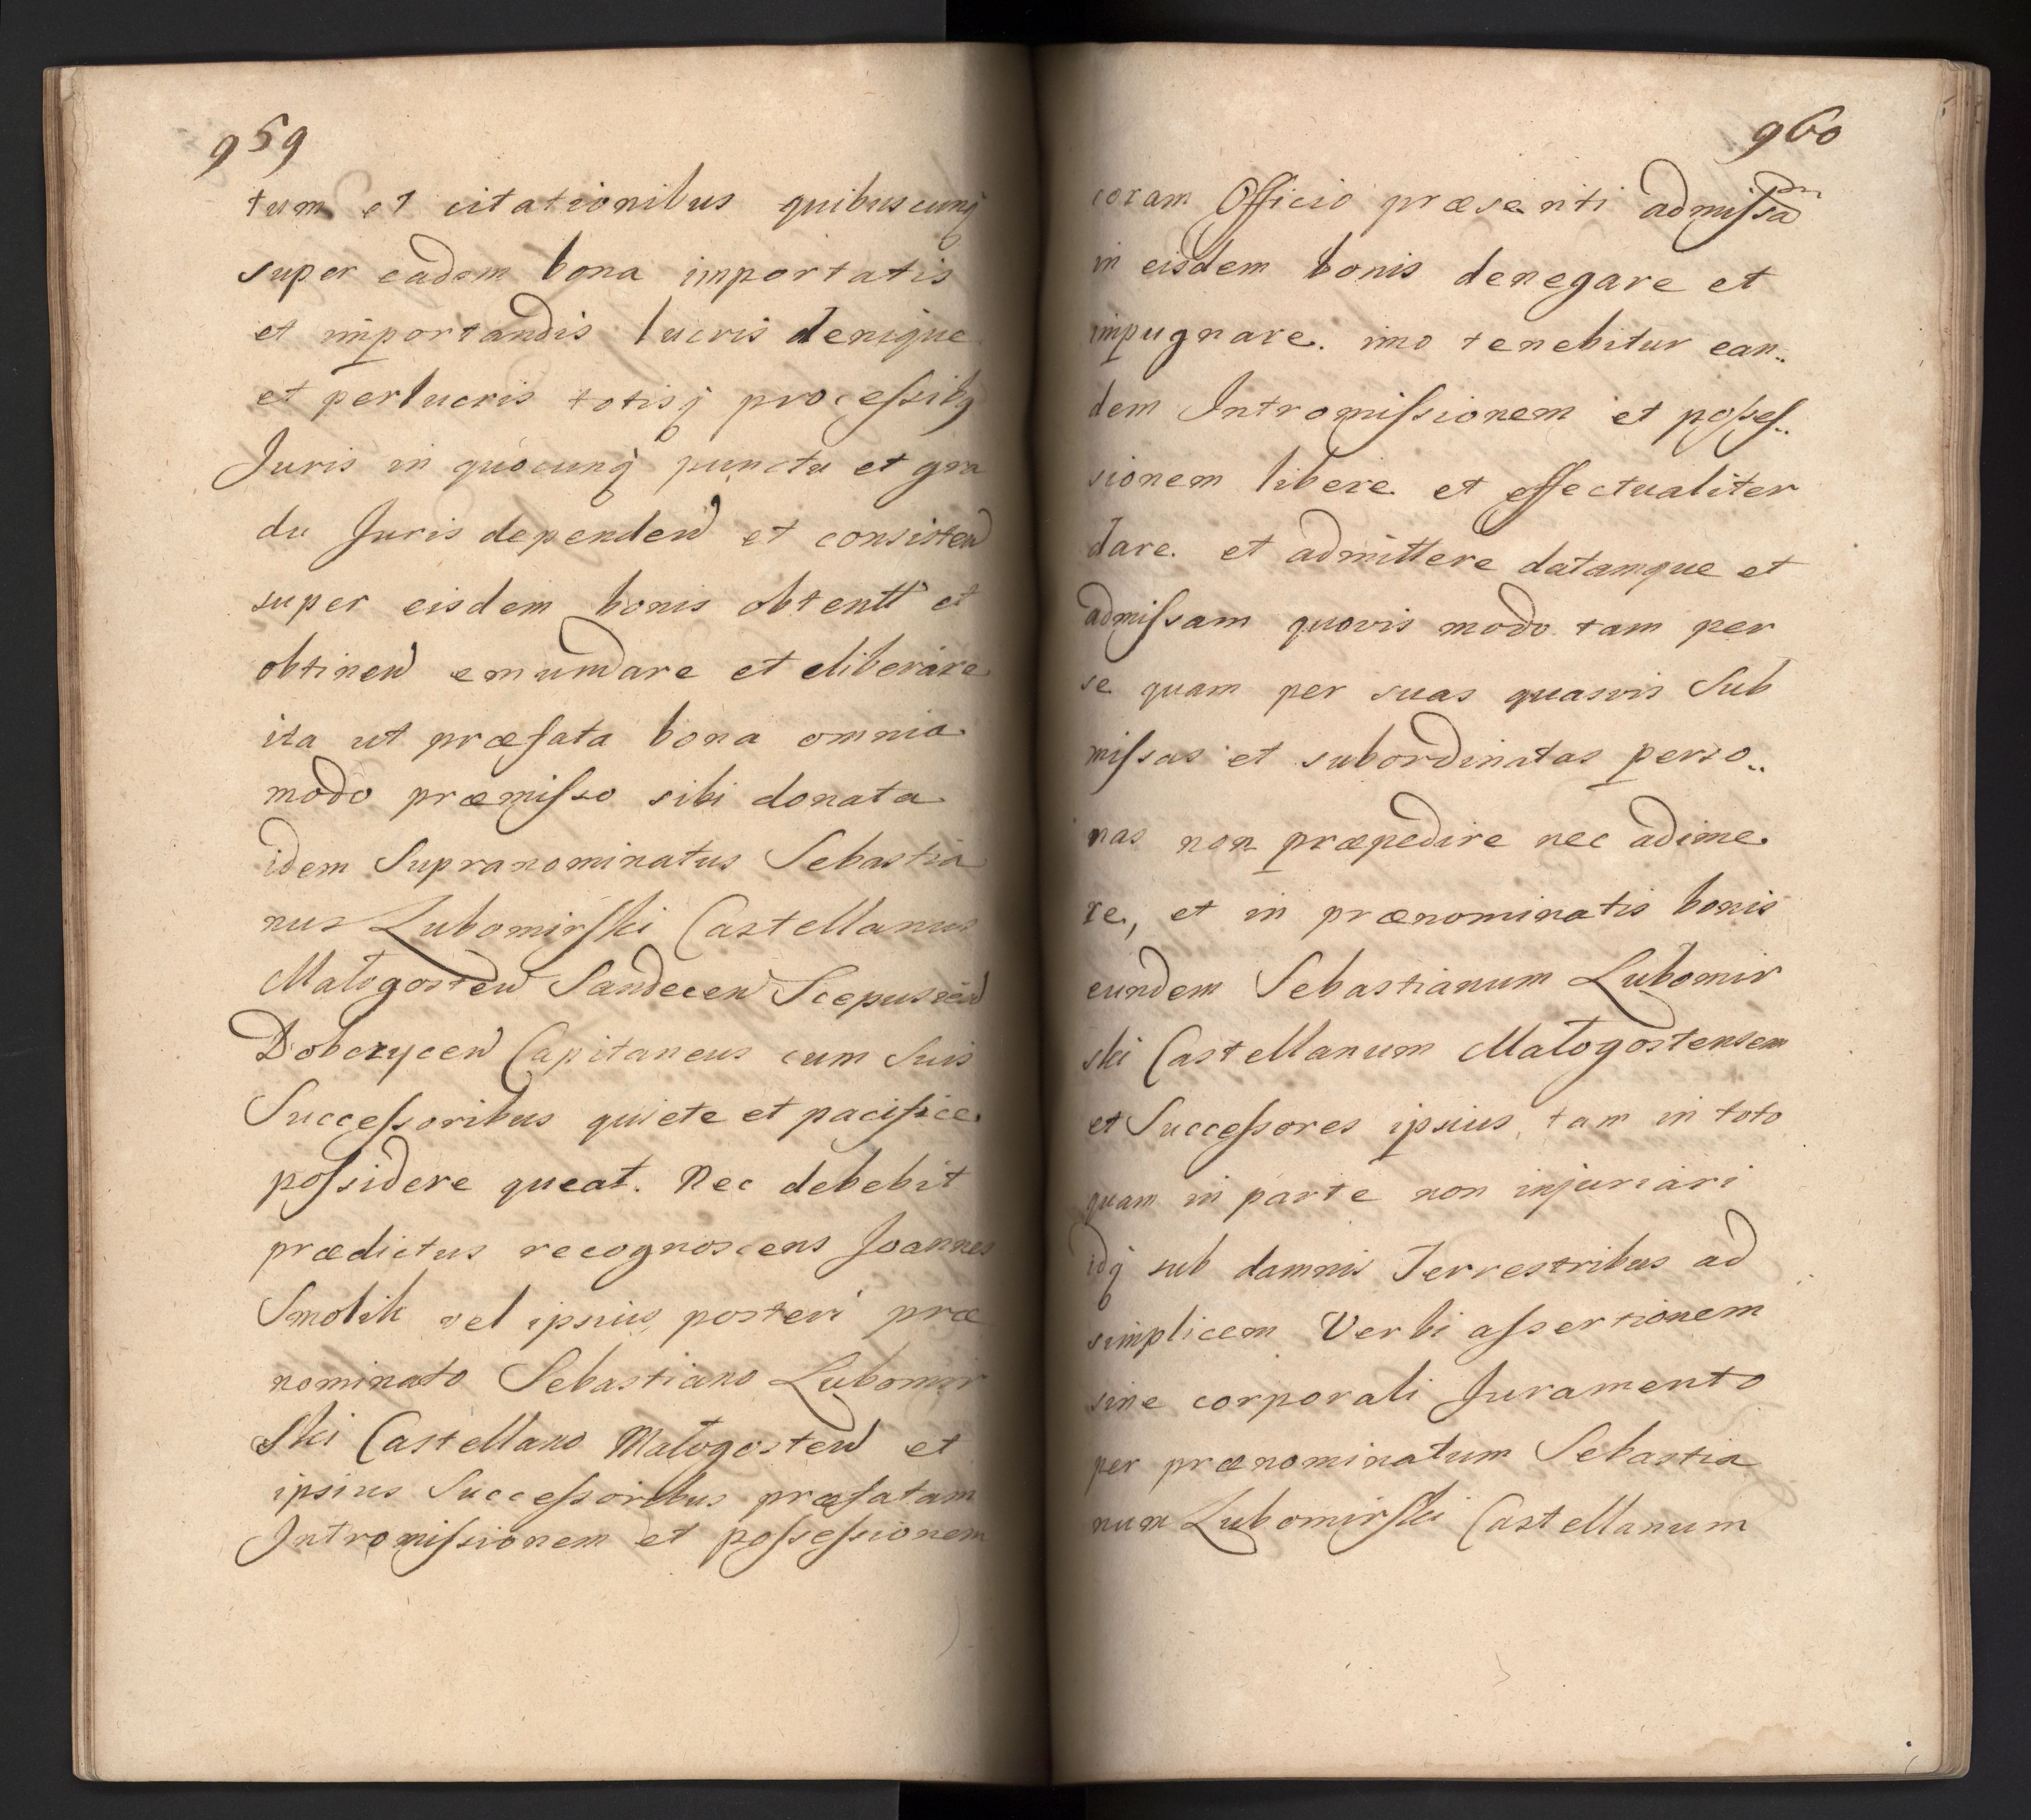 959
tum et citationibus quibuscunq
super eadem bona importatis
et importandis lucris denique
et perlucris totisq processibq
Juris in quocunq puncto et gra
du Juris dependen et consisten
super eisdem bonis obtentt et
obtinen emundare et eliberare
ita ut præfata bona omnia
modo præmisso sibi donata
idem Supranominatus Sebastia
nus Lubomirski Castellanus
Małogosten Sandecen Scepusien
Dobczycen Capitaneus cum Suis
Successoribus quiete et pacifice
possidere queat. Nec debebit
prædictus recognoscens Joannes
Smolik vel ipsius posteri præ
nominato Sebastiano Lubomir
Ski Castellano Małogosten et
ipsius Successoribus præfatam
Intromissionem et possessionem
960
coram Officio præsenti admissa
in eisdem bonis denegare et
impugnare. imo tenebitur ean..
dem Intromissionem et posses..
sionem libere et effectualiter
dare. et admittere datamque et
admissam quovis modo tam per
se quam per suas quasvis Sub
missas et subordinatas perso..
nas non præpedire nec adime.
re, et in prænominatis bonis
eundem Sebastianum Lubomir
ski Castellanum Małogostensem
et Successores ipsius, tam in toto
quam in parte non injuriari
idq sub damnis Terrestribus ad
simplicem Verbi assertionem
sine corporali Juramento
per prænominatum Sebastia
num Lubomirski Castellanum